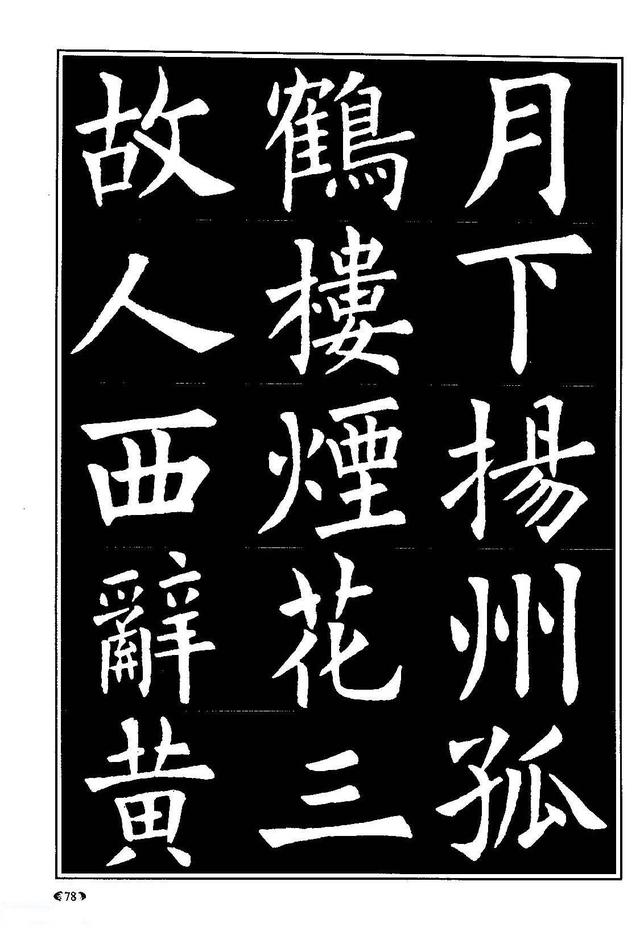 故人西辭黄
鶴樓煙花三
月下揚州孤
78